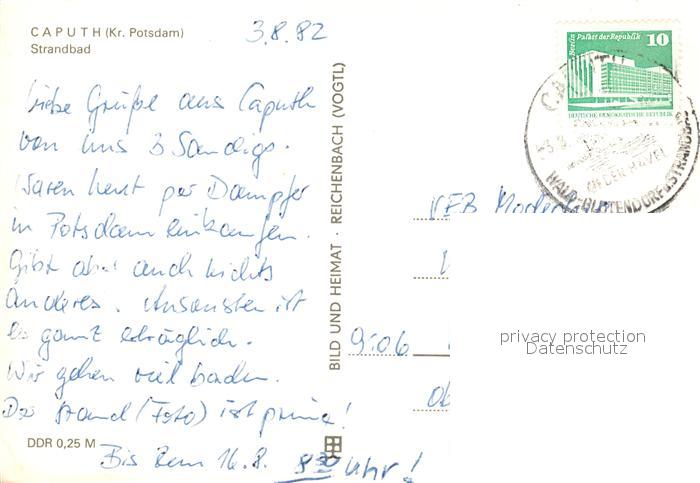 CAPUTH (Kr. Potsdam)
Strandbad
3.8.82
Liebe Grüße aus Caputh
von uns 3 Sandigs.
Waren heut per Dampfer
in Potsdam einkaufen.
Gibt aber auch nichts
Anderes. Ansonsten ist
es ganz erträglich.
Wir gehen viel baden.
Der Strand (Foto) ist prima!
Bis zum 16.8. 8³⁰ Uhr!
DDR 0,25 M
BILD UND HEIMAT · REICHENBACH (VOGTL)
Berlin Palast der Republik 10
DEUTSCHE DEMOKRATISCHE REPUBLIK
AN DER HAVEL
WALD-BLÜTENDORF & STRANDBAD
VEB
9306
privacy protection
Datenschutz